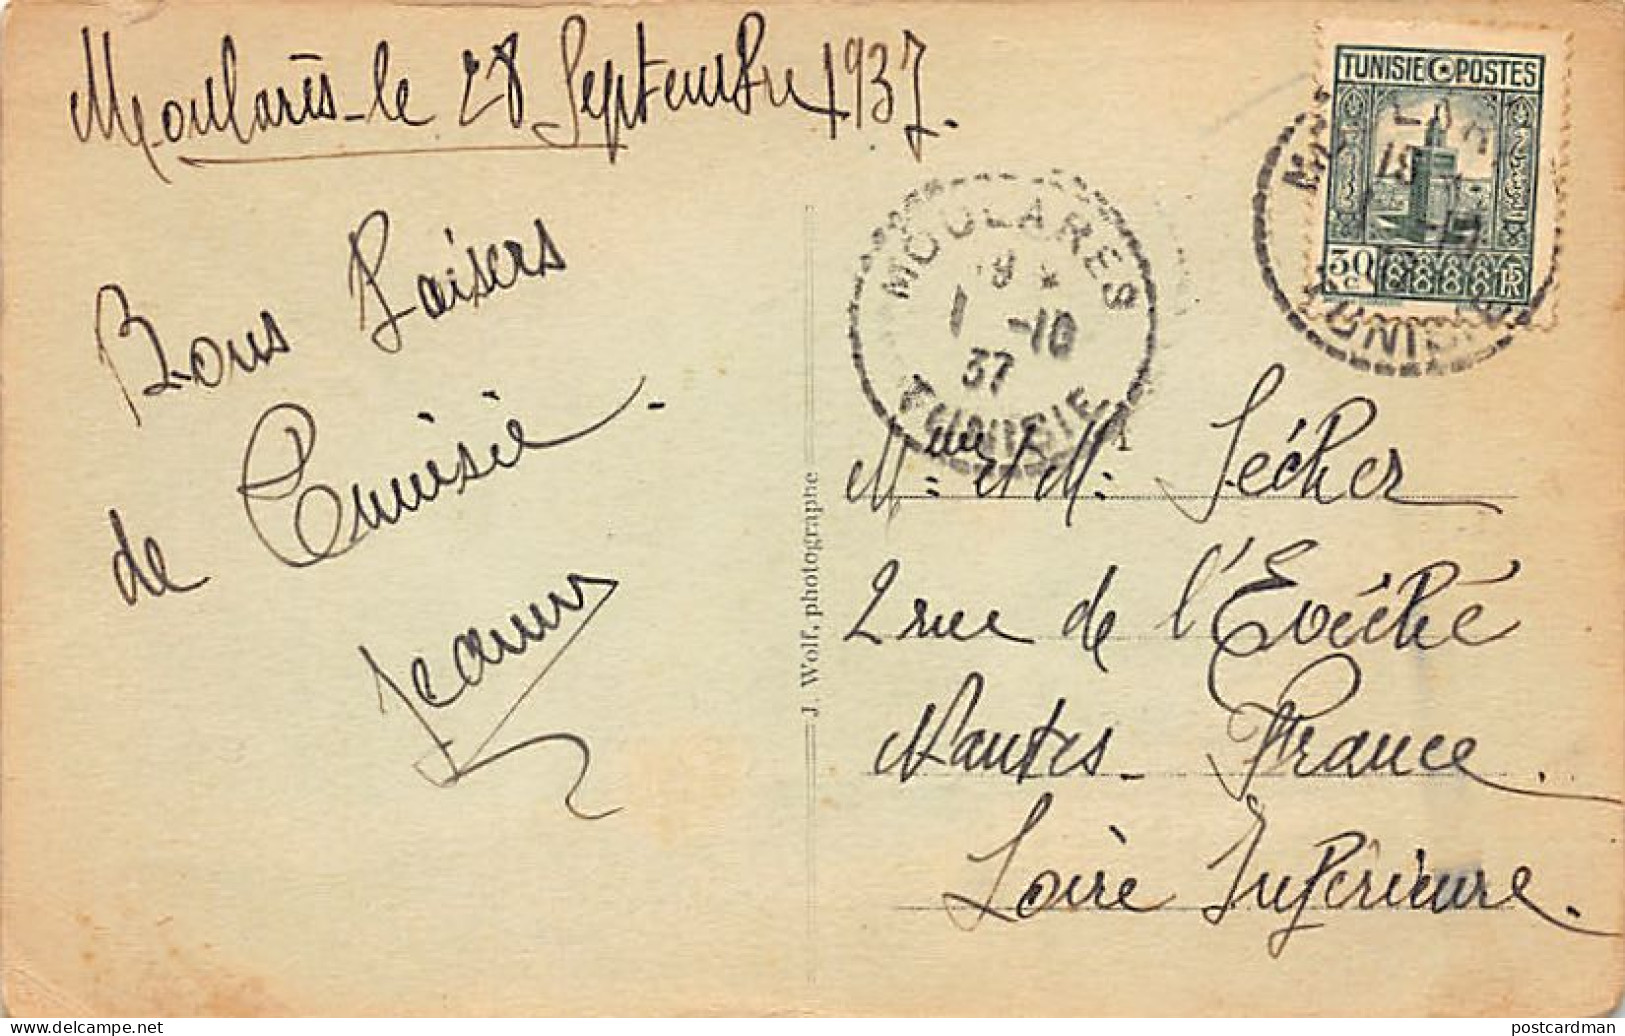 Moularès - le 28 Septembre 1937.
TUNISIE POSTES
30 c
MOULARES
1 -10
37
TUNISIE
TUNISIE
Bons baisers
de Tunisie -
J. Wolf, photographe
Mme et Mr Sécher
2 rue de l'Evêché
Nantes - France.
Loire Inférieure.
delcampe.net
postcardman